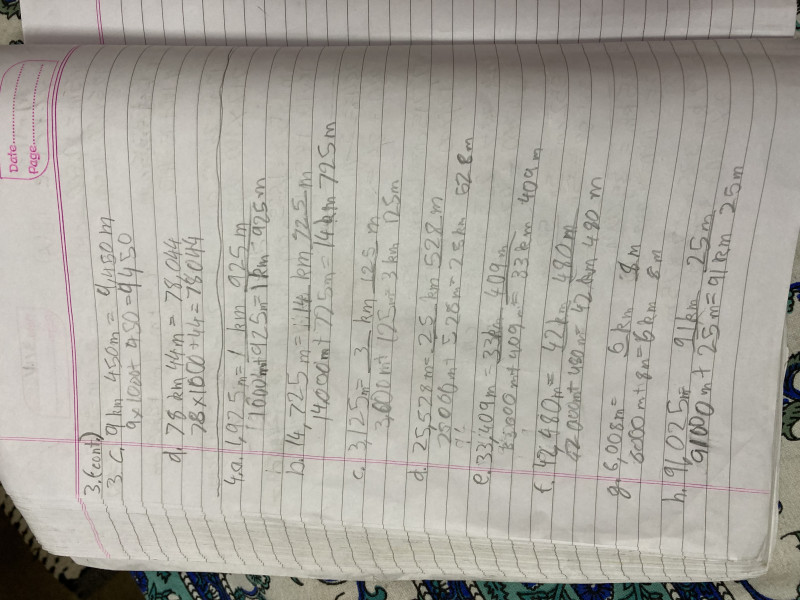 Date..................
Page..................
3. (cont)
3. c. 9 km 450m = 9450 m
9 x 1000 + 450 = 9450
d. 78 km 44m = 78,044
78 x 1000 + 44 = 78,044
4. a. 1,925 m = 1 km 925 m
1000m + 925 = 1 km 925 m
b. 14,725 m = 14 km 725 m
14000m + 725m = 14 km 725 m
c. 3,125m = 3 km 125 m
3,000m + 125m = 3 km 125m
d. 25,528m = 25 km 528 m
25000m + 528m = 25 km 528 m
e. 33,409m = 33 km 409m
33000m + 409m = 33 km 409 m
f. 42,480m = 42 km 480m
42000m + 480m = 42 km 480 m
g. 6,008m = 6 km 8 m
6000m + 8m = 6 km 8 m
h. 91,025m 91 km 25m
91000m + 25m = 91 km 25 m